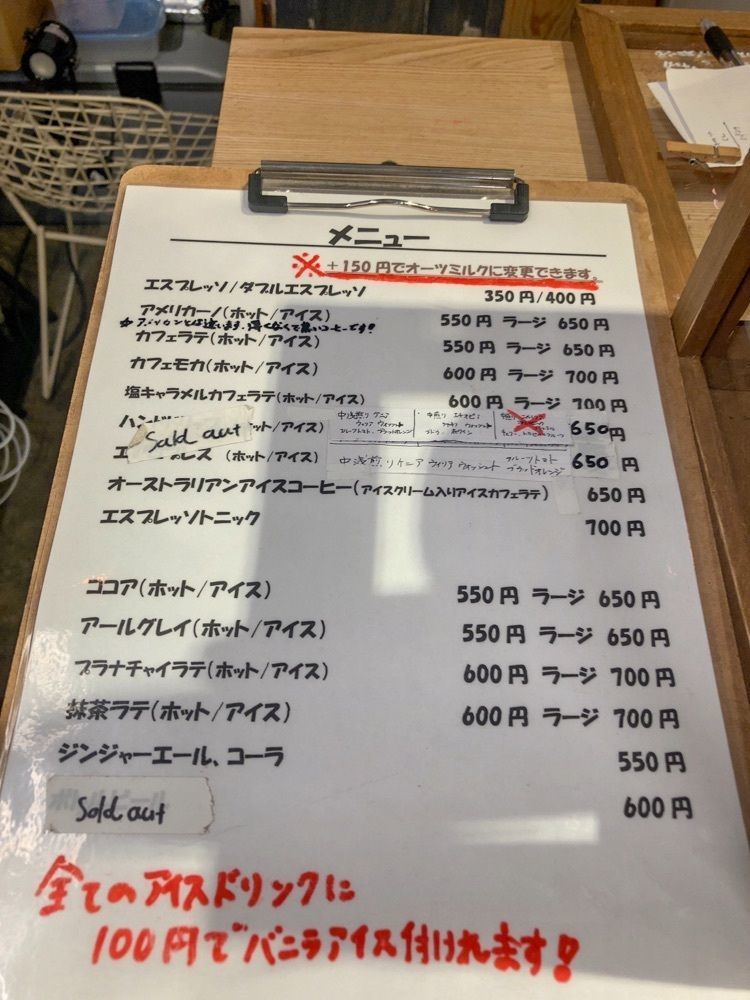 メニュー
※ +150円でオーツミルクに変更できます。
エスプレッソ/ダブルエスプレッソ 350円/400円
アメリカーノ(ホット/アイス) 550円 ラージ 650円
カフェラテ(ホット/アイス) 550円 ラージ 650円
カフェモカ(ホット/アイス) 600円 ラージ 700円
塩キャラメルカフェラテ(ホット/アイス) 600円 ラージ 700円
ハンド ット/アイス) 650円
Sold out
中浅煎り ケニア 中煎り エチオピア
プレス (ホット/アイス) 中浅煎り ケニア ウォッシュト フルーツトマト ブラッドオレンジ 650円
オーストラリアンアイスコーヒー(アイスクリーム入りアイスカフェラテ) 650円
エスプレッソトニック 700円
ココア(ホット/アイス) 550円 ラージ 650円
アールグレイ(ホット/アイス) 550円 ラージ 650円
プラナチャイラテ(ホット/アイス) 600円 ラージ 700円
抹茶ラテ(ホット/アイス) 600円 ラージ 700円
ジンジャーエール、コーラ 550円
ボトルビール 600円
Sold out
全てのアイスドリンクに
100円でバニラアイス付けれます!